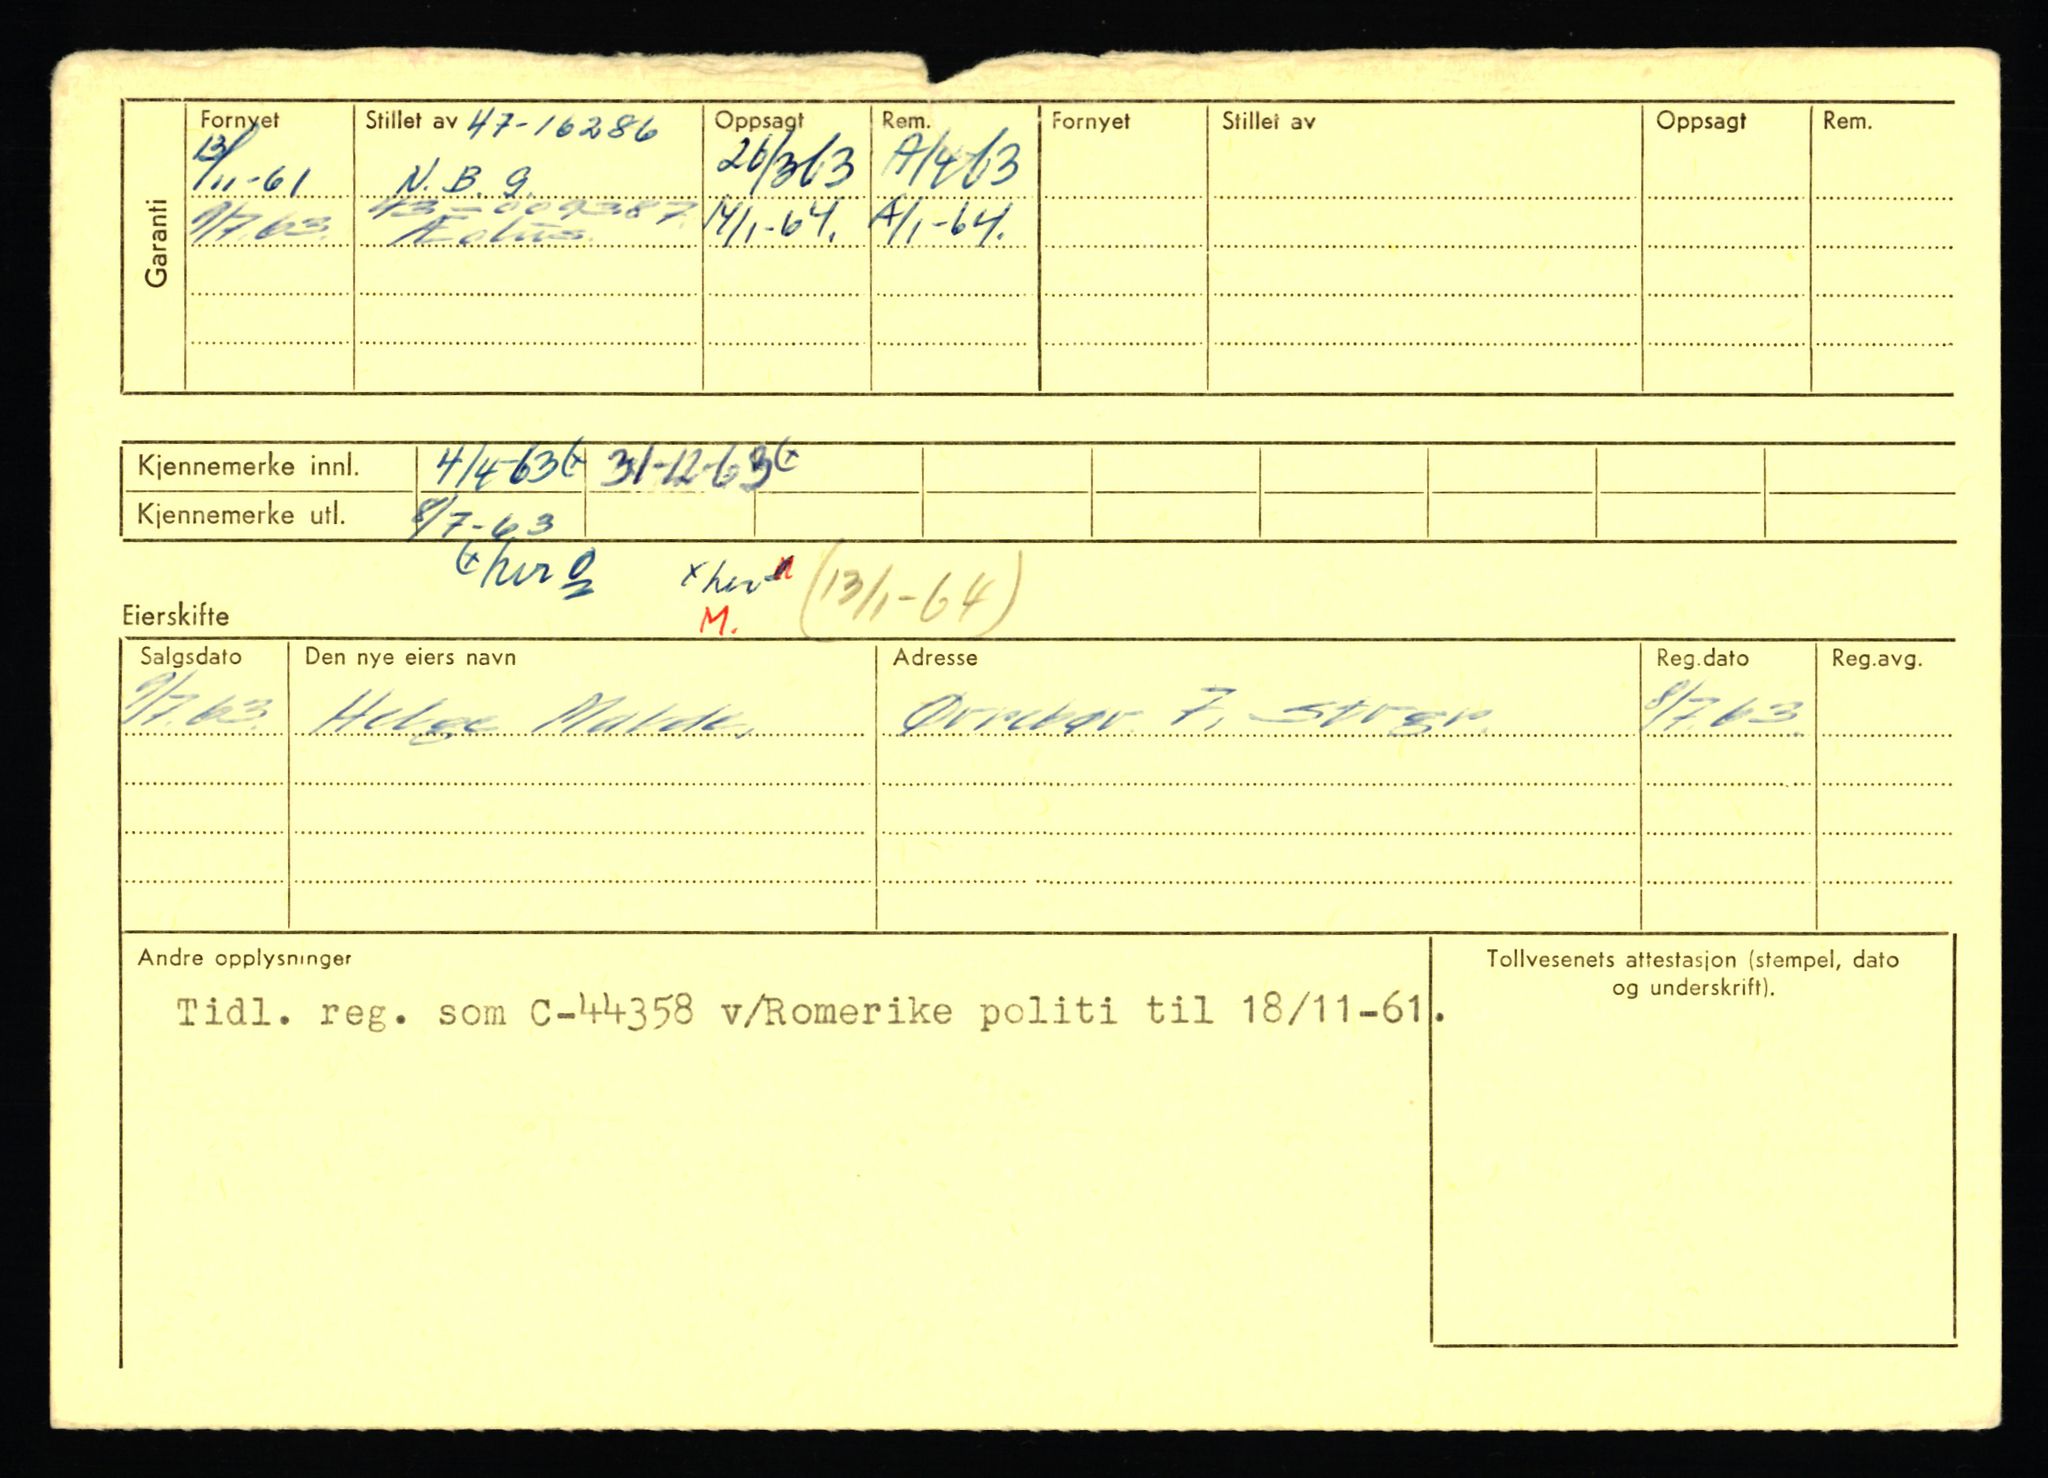 Garanti
Fornyet Stillet av 47-16286 Oppsagt Rem. Fornyet Stillet av Oppsagt Rem.
13/11-61 N. B. G. 26/3 63 A/4-63
9/7.63. 43-009387. Æolus. 14/1-64. A/1-64.
Kjennemerke innl. 4/4-63 (x 31-12-63 (x
Kjennemerke utl. 8/7-63
(x her x her (13/1-64)
M.
Eierskifte
Salgsdato Den nye eiers navn Adresse Reg.dato Reg.avg.
9/7.63. Helge Malde, 7, 8/7.63.
Andre opplysninger
Tollvesenets attestasjon (stempel, dato
og underskrift).
Tidl. reg. som C-44358 v/Romerike politi til 18/11-61.